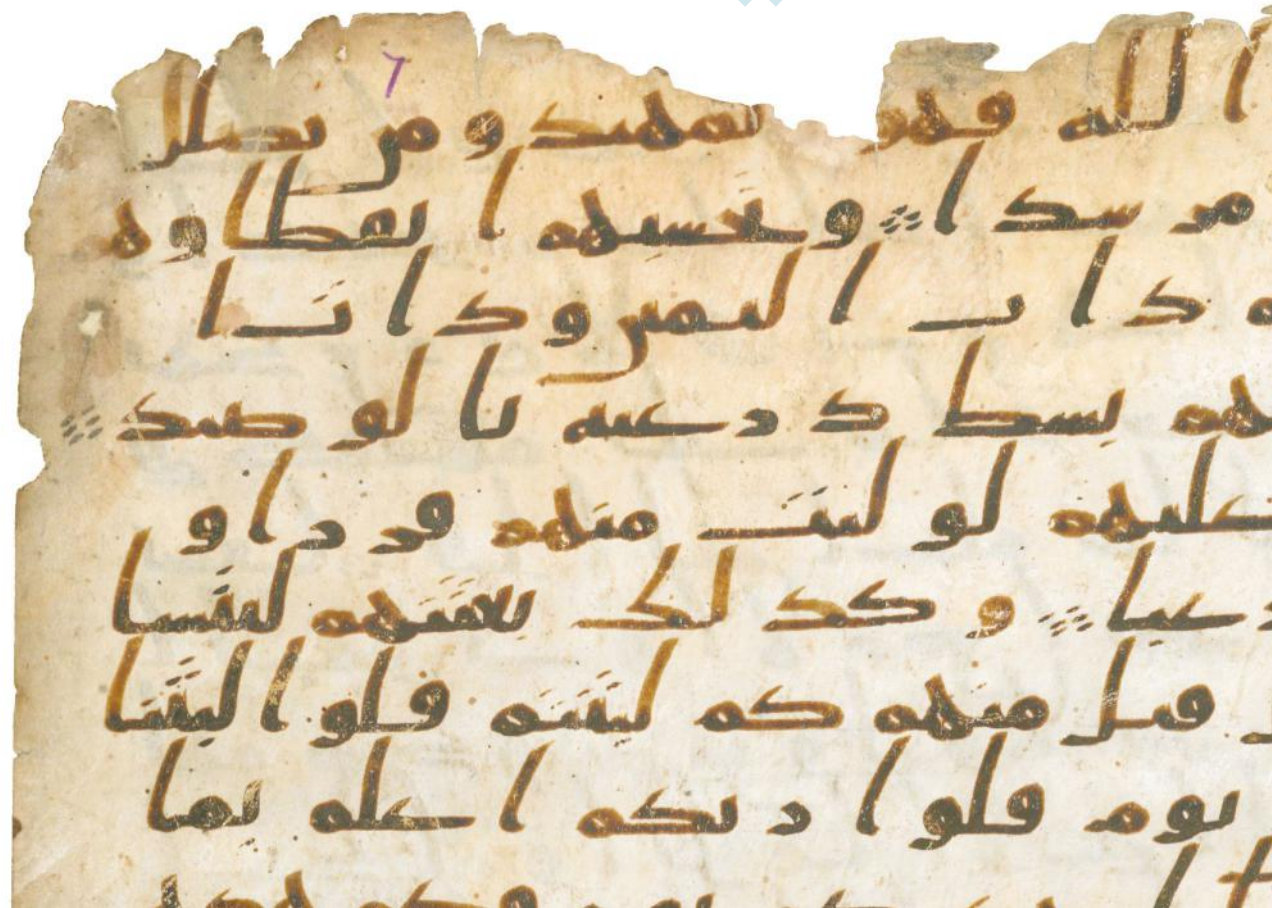 ٦
الله فهو المهتد ومن يضلل
مرشدا وتحسبهم ايقظا وهم
ذات اليمين وذات ا
بسط ذرعيه بالوصيد
عليهم لوليت منهم فررا و
رعبا وكذلك بعثنهم ليتسا
قيل منهم كم لبثتم قلوا لبثنا
يوم قلوا ربكم اعلم بما